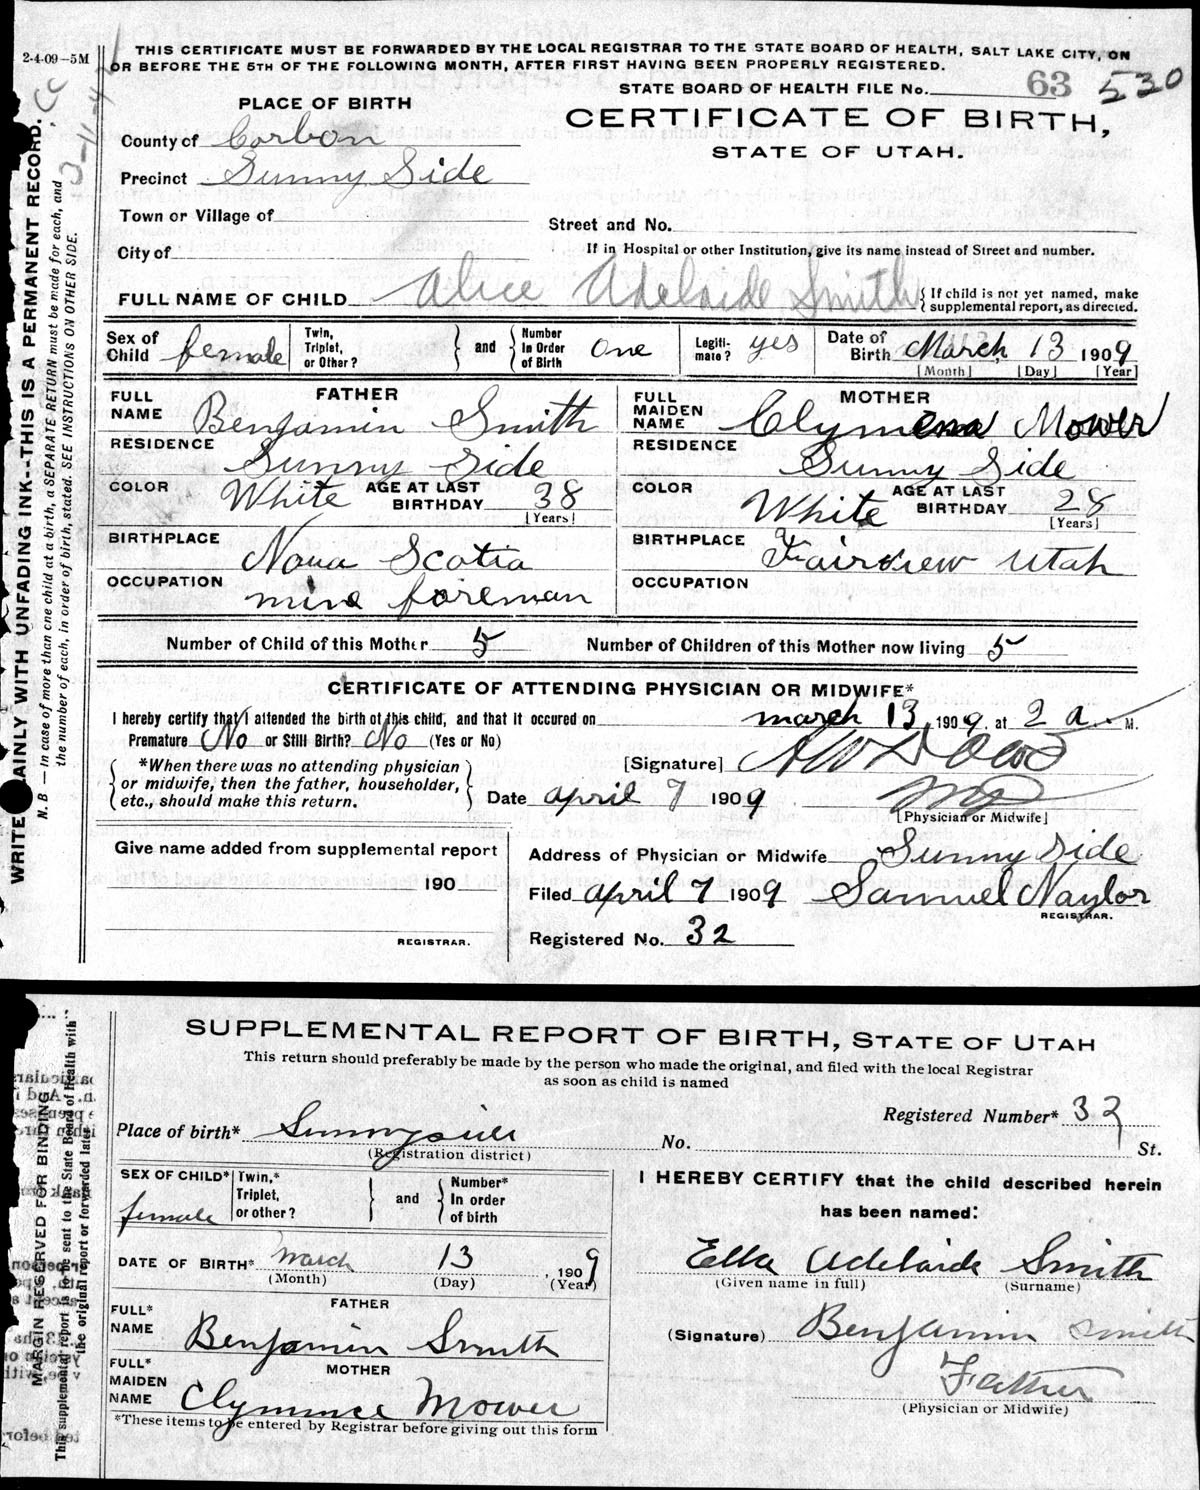 2-4-09-5M
THIS CERTIFICATE MUST BE FORWARDED BY THE LOCAL REGISTRAR TO THE STATE BOARD OF HEALTH, SALT LAKE CITY, ON
OR BEFORE THE 5TH OF THE FOLLOWING MONTH, AFTER FIRST HAVING BEEN PROPERLY REGISTERED.
STATE BOARD OF HEALTH FILE No. 63 530
PLACE OF BIRTH
CERTIFICATE OF BIRTH,
STATE OF UTAH.
County of Carbon
Precinct Sunny Side
Town or Village of
Street and No.
City of
If in Hospital or other Institution, give its name instead of Street and number.
FULL NAME OF CHILD Alice Adelaide Smith { If child is not yet named, make
supplemental report, as directed.
Sex of Child female Twin, Triplet, or Other? } and { Number In Order of Birth One Legiti-mate? yes Date of Birth March 13 1909
[Month] [Day] [Year]
FATHER
FULL NAME Benjamin Smith
RESIDENCE Sunny Side
COLOR White AGE AT LAST BIRTHDAY 38
[Years]
BIRTHPLACE Nova Scotia
OCCUPATION mine foreman
MOTHER
FULL MAIDEN NAME Clymena Mower
RESIDENCE Sunny Side
COLOR White AGE AT LAST BIRTHDAY 28
[Years]
BIRTHPLACE Fairview Utah
OCCUPATION
Number of Child of this Mother 5 Number of Children of this Mother now living 5
CERTIFICATE OF ATTENDING PHYSICIAN OR MIDWIFE*
I hereby certify that I attended the birth of this child, and that it occured on march 13, 1909, at 2 a. M.
Premature No or Still Birth? No (Yes or No)
{ *When there was no attending physician
or midwife, then the father, householder,
etc., should make this return. }
[Signature] Dowd
Date april 7 1909 MD
[Physician or Midwife]
Give name added from supplemental report
190
REGISTRAR.
Address of Physician or Midwife Sunny Side
Filed april 7 1909 Samuel Naylor
REGISTRAR.
Registered No. 32
AINLY WITH UNFADING INK--THIS IS A PERMANENT RECORD.
WRITE
N. B — In case of more than one child at a birth, a SEPARATE RETURN must be made for each, and
the number of each, in order of birth, stated. SEE INSTRUCTIONS ON OTHER SIDE.
SUPPLEMENTAL REPORT OF BIRTH, STATE OF UTAH
This return should preferably be made by the person who made the original, and filed with the local Registrar
as soon as child is named
Registered Number* 32
Place of birth* Sunnyside No. St.
(Registration district)
SEX OF CHILD* female Twin,* Triplet, or other? } and { Number* In order of birth
DATE OF BIRTH* March 13, 1909
(Month) (Day) (Year)
FATHER
FULL* NAME Benjamin Smith
MOTHER
FULL* MAIDEN NAME Clymnce Mower
*These items to be entered by Registrar before giving out this form
I HEREBY CERTIFY that the child described herein
has been named:
Ella Adelaide Smith
(Given name in full) (Surname)
(Signature) Benjamin Smith
Father
(Physician or Midwife)
MARGIN RESERVED FOR BINDING
This supplemental report is to be sent to the State Board of Health with
the original report or forwarded later